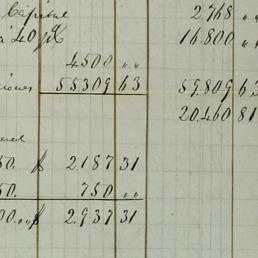 Capital 2.768 " "
a 40 p% 16.800 " "
4.500 " "
ciones 55309 63 59.809 63
20.460 81
50. $ 2.187 31
50. 750 " "
00. " $ 2.937 31